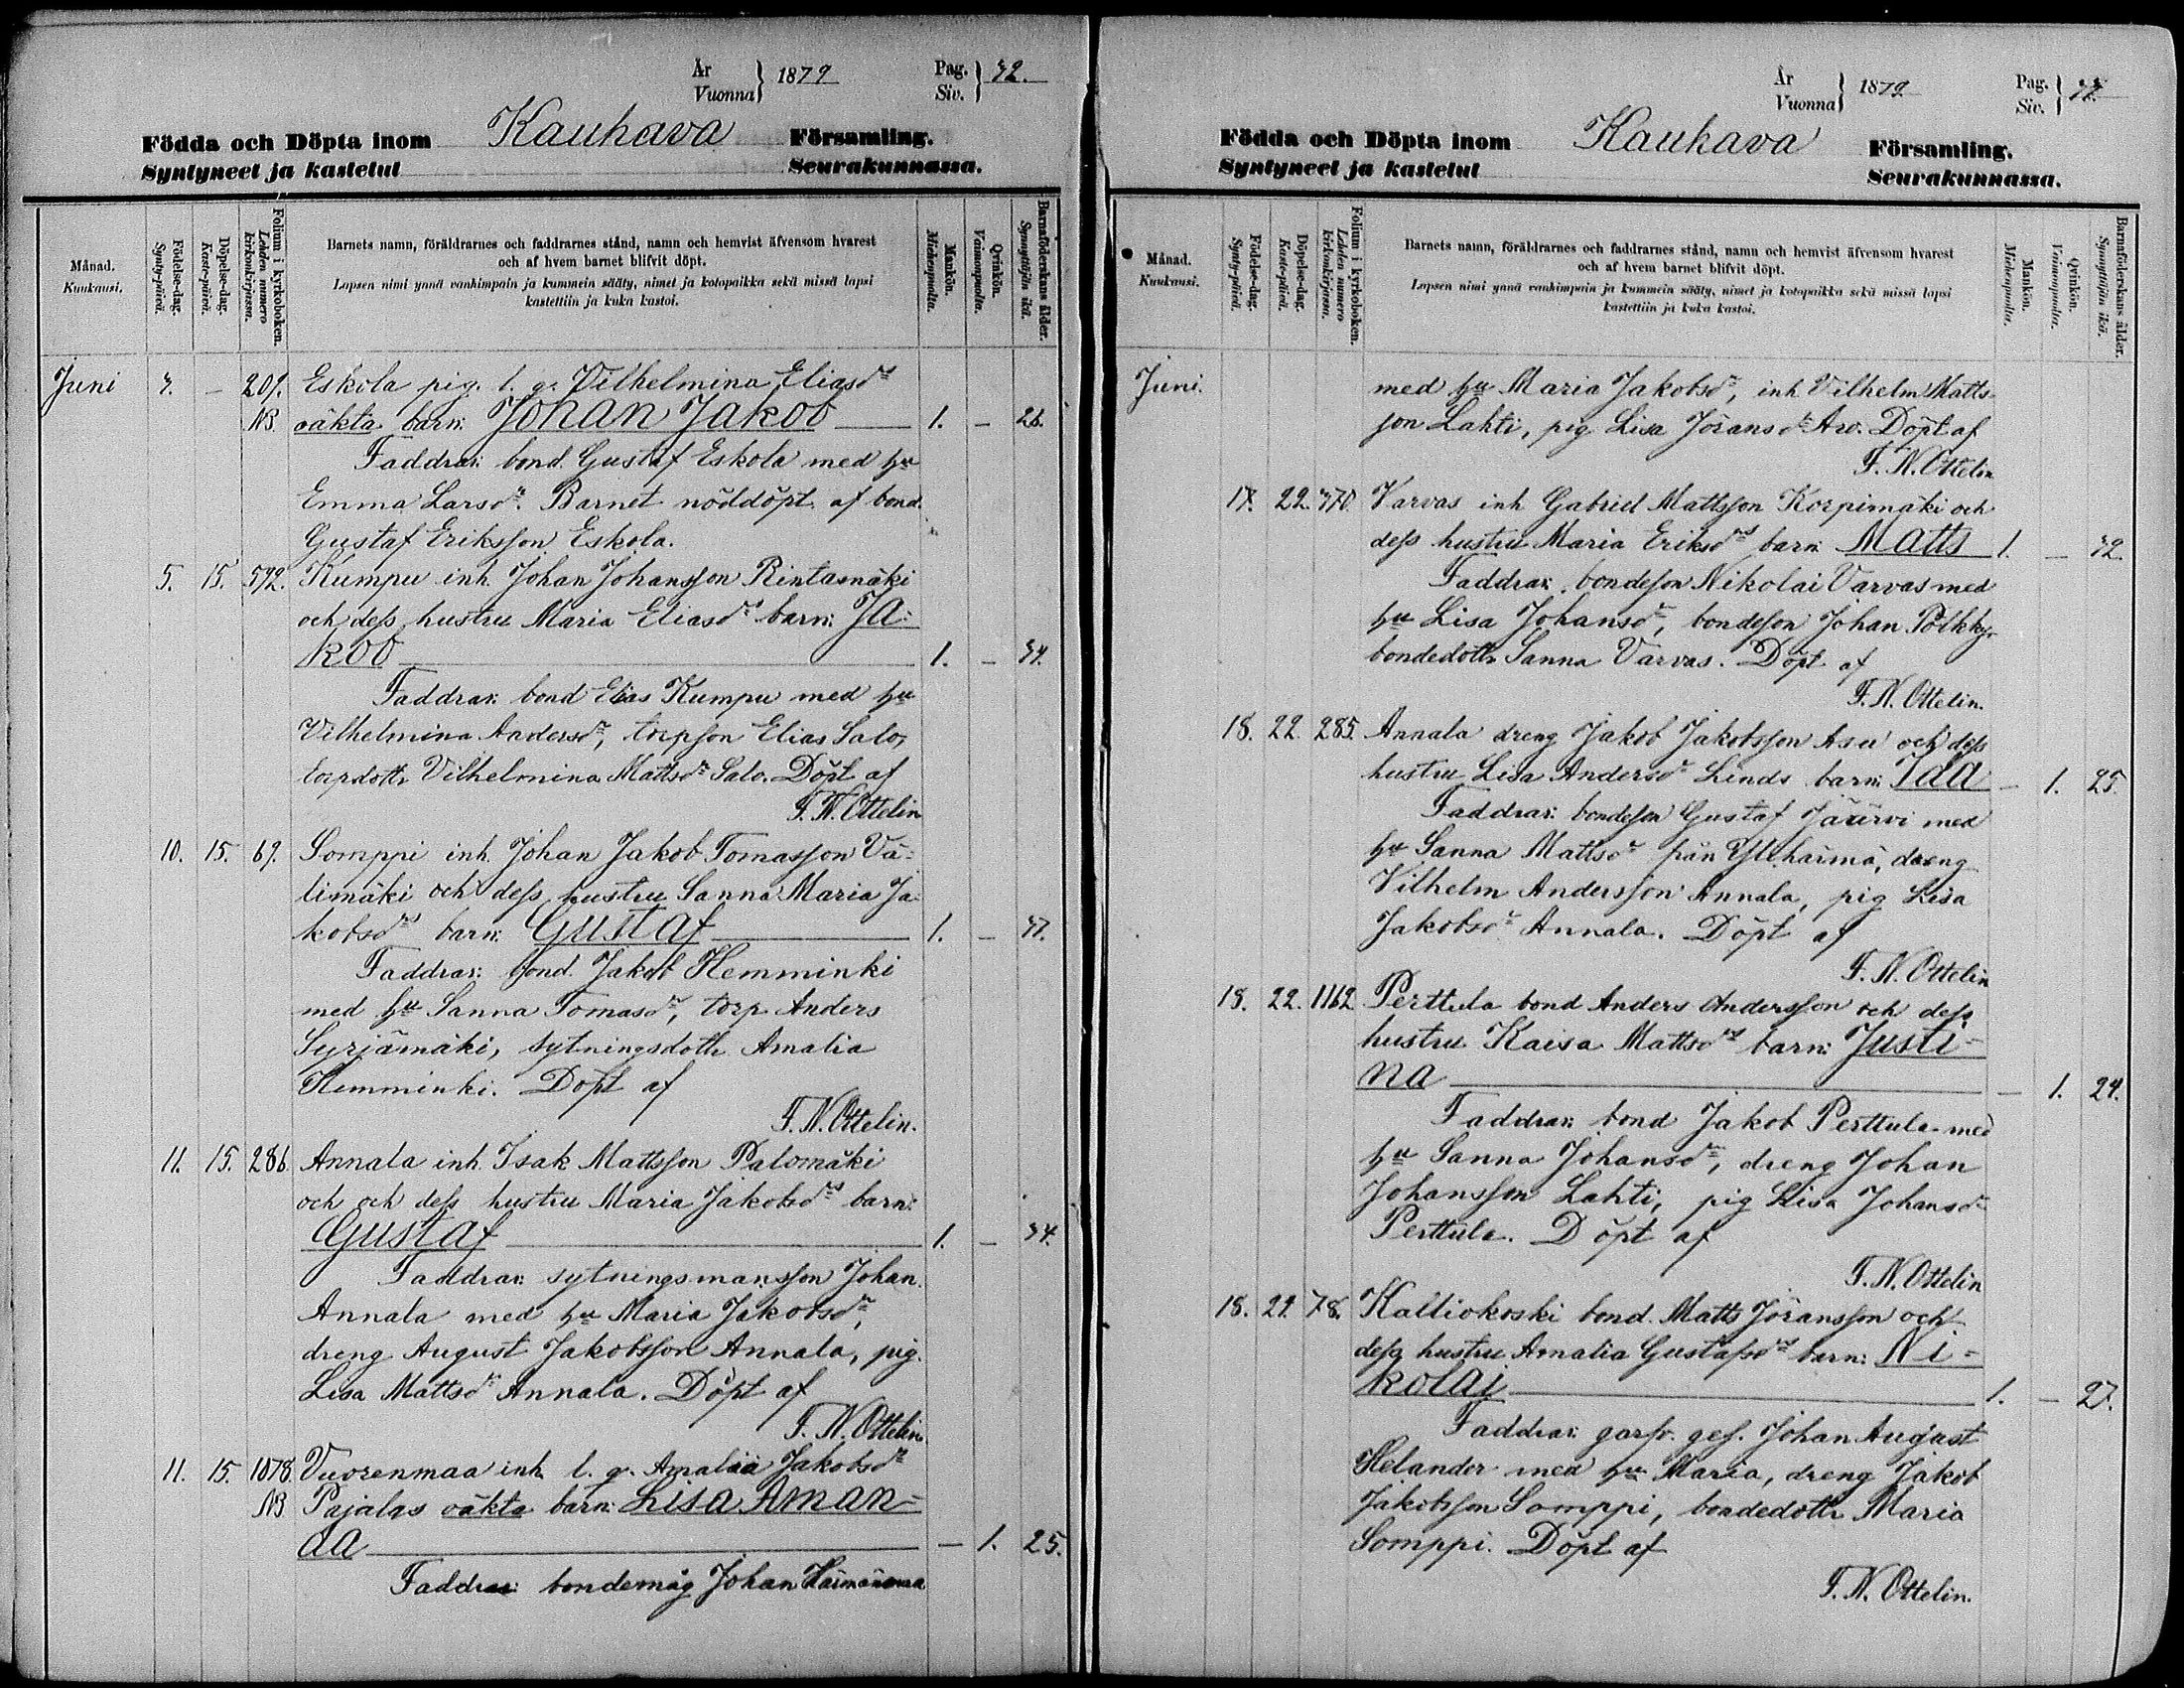 År
Vuonna } 1879
Pag.
Siv. } 32.
Födda och Döpta inom Kauhava Församling.
Syntyneet ja kastetut Seurakunnassa.
Månad.
Kuukausi.
Födelse-dag.
Synty-päivä.
Döpelse-dag.
Kaste-päivä.
Folium i kyrkoboken.
Lehden numero kirkonkirjassa.
Barnets namn, föräldrarnes och faddrarnes stånd, namn och hemvist äfvensom hvarest
och af hvem barnet blifvit döpt.
Lapsen nimi ynnä vanhimpain ja kummein sääty, nimet ja kotopaikka sekä missä lapsi
kastettiin ja kuka kastoi.
Mankön.
Miehenpuolta.
Qvinkön.
Vaimonpuolta.
Barnaföderskans ålder.
Synnyttäjän ikä.
Juni – 209. Eskola pig. l. q. Vilhelmina Eliasdrs
NB. oäkta barn: Johan Jakob 1. – 26.
Faddrar: bond. Gustaf Eskola med hu
Emma Larsdr. Barnet nöddöpt af bond.
Gustaf Eriksson Eskola.
5. 15. 592. Kumpu inh. Johan Johansson Rintamäki
och dess hustru Maria Eliasdrs barn: Ja-
kob 1. – 34.
Faddrar: bond Elias Kumpu med hu
Vilhelmina Andersdr, torpson Elias Salo,
torpdottr Vilhelmina Mattsdr Salo. Döpt af
F. N. Ottelin
10. 15. 69. Somppi inh. Johan Jakob Tomasson Vä-
limäki och dess hustru Sanna Maria Ja-
kobsdrs barn: Gustaf 1. –
Faddrar: bond. Jakob Hemminki
med hu Sanna Tomasdr, torp. Anders
Syrjämäki, sytningsdottr Amalia
Hemminki. Döpt af
F. N. Ottelin.
11. 15. 286. Annala inh. Isak Mattsson Palomäki
och och dess hustru Maria Jakobsdrs barn:
Gustaf 1. – 34.
Faddrar: sytningsmansson Johan
Annala med hu Maria Jakobsdr,
dreng August Jakobsson Annala, pig.
Lisa Mattsdr Annala. Döpt af
F. N. Ottelin.
11. 15. 1078. Vuorenmaa inh. l. q. Amalia Jakobsdr
NB Pajalas oäkta barn: Lisa Aman-
da – 1. 25.
Faddrar: bondemåg Johan Härmänmaa
År
Vuonna } 1879.
Pag.
Siv. }
Födda och Döpta inom Kauhava Församling.
Syntyneet ja kastetut Seurakunnassa.
Månad.
Kuukausi.
Födelse-dag.
Synty-päivä.
Döpelse-dag.
Kaste-päivä.
Folium i kyrkoboken.
Lehden numero kirkonkirjassa.
Barnets namn, föräldrarnes och faddrarnes stånd, namn och hemvist äfvensom hvarest
och af hvem barnet blifvit döpt.
Lapsen nimi ynnä vanhimpain ja kummein sääty, nimet ja kotopaikka sekä missä lapsi
kastettiin ja kuka kastoi.
Mankön.
Miehenpuolta.
Qvinkön.
Vaimonpuolta.
Barnaföderskans ålder.
Synnyttäjän ikä.
Juni. med hu Maria Jakobsdr, inh Vilhelm Matts-
son Lahti, pig Lisa Jöransdr Aro. Döpt af
F. N. Ottelin
17. 22. 370. Varvas inh Gabriel Mattsson Korpimäki och
dess hustru Maria Eriksdrs barn: Matts 1. – 32.
Faddrar: bondeson Nikolai Varvas med
hu Lisa Johansdr, bondeson Johan Pölkky,
bondedottr Sanna Varvas. Döpt af
F. N. Ottelin.
18. 22. 285. Annala dreng Jakob Jakobsson Asu och dess
hustru Lisa Andersdr Linds barn: Ida – 1. 25.
Faddrar: bondeson Gustaf Järvi med
hu Sanna Mattsdr från Ylihärmä, dreng
Vilhelm Andersson Annala, pig Lisa
Jakobsdr Annala. Döpt af
F. N. Ottelin
18. 22. 1162 Perttula bond Anders Andersson och dess
hustru Kaisa Mattsdrs barn: Justi-
na – 1. 24.
Faddrar: bond Jakob Perttula med
hu Sanna Johansdr, dreng Johan
Johansson Lahti, pig Lisa Johansdr
Perttula. Döpt af
F. N. Ottelin
18. 29. 78. Kalliokoski bond. Matts Jöransson och
dess hustru Amalia Gustafsdrs barn: Ni-
kolai 1. – 27.
Faddrar: garfv. ges. Johan August
Helander med hu Maria, dreng Jakob
Jakobsson Somppi, bondedottr Maria
Somppi. Döpt af
F. N. Ottelin.